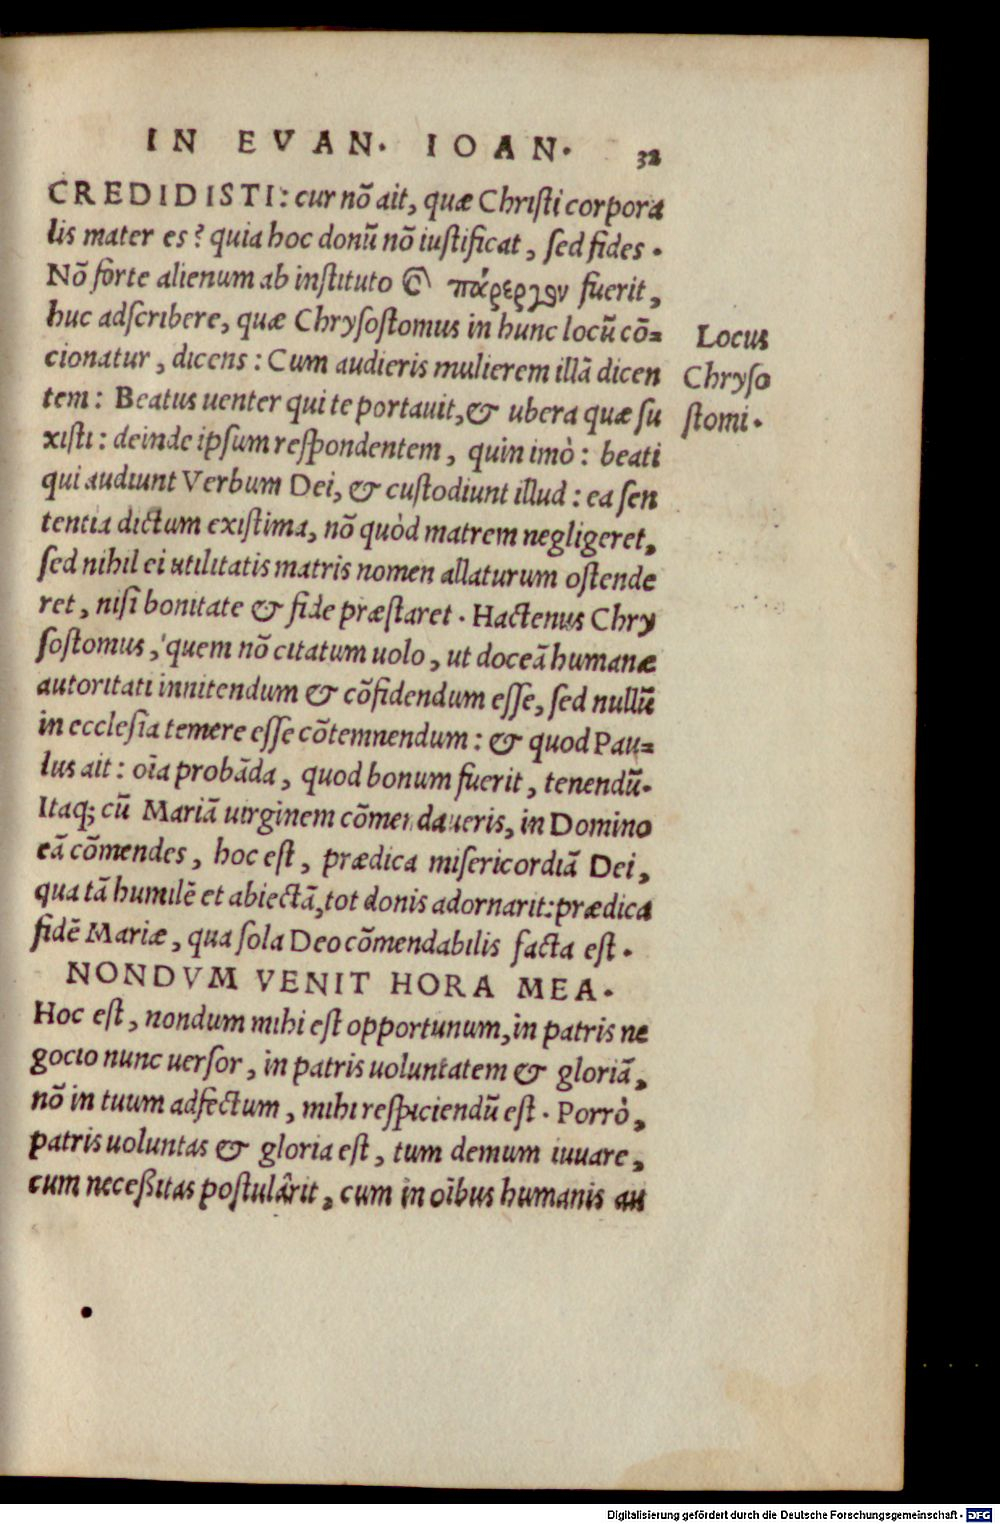 IN EVAN. IOAN. 32
CREDIDISTI: cur nõ ait, quæ Christi corpora
lis mater es? quia hoc donũ nõ iustificat, sed fides.
Nõ forte alienum ab instituto & πάρεργον fuerit,
huc adscribere, quæ Chrysostomus in hunc locũ cõ=
cionatur, dicens: Cum audieris mulierem illã dicen
tem: Beatus uenter qui te portauit, & ubera quæ su
xisti: deinde ipsum respondentem, quin imò: beati
qui audiunt Verbum Dei, & custodiunt illud: ea sen
tentia dictum existima, nõ quòd matrem negligeret,
sed nihil ei utilitatis matris nomen allaturum ostende
ret, nisi bonitate & fide præstaret. Hactenus Chry
sostomus, quem nõ citatum uolo, ut doceã humanæ
autoritati innitendum & cõfidendum esse, sed nullũ
in ecclesia temere esse cõtemnendum: & quod Pau=
lus ait: oĩa probãda, quod bonum fuerit, tenendũ.
Itaq; cũ Mariã uirginem cõmendaueris, in Domino
eã cõmendes, hoc est, prædica misericordiã Dei,
qua tã humilẽ et abiectã, tot donis adornarit: prædica
fidẽ Mariæ, qua sola Deo cõmendabilis facta est.
NONDVM VENIT HORA MEA.
Hoc est, nondum mihi est opportunum, in patris ne
gocio nunc uersor, in patris uoluntatem & gloriã,
nõ in tuum adfectum, mihi respiciendũ est. Porrò,
patris uoluntas & gloria est, tum demum iuuare,
cum neceßitas postulârit, cum in oĩbus humanis au
Locus
Chryso
stomi.
Digitalisierung gefördert durch die Deutsche Forschungsgemeinschaft - DFG